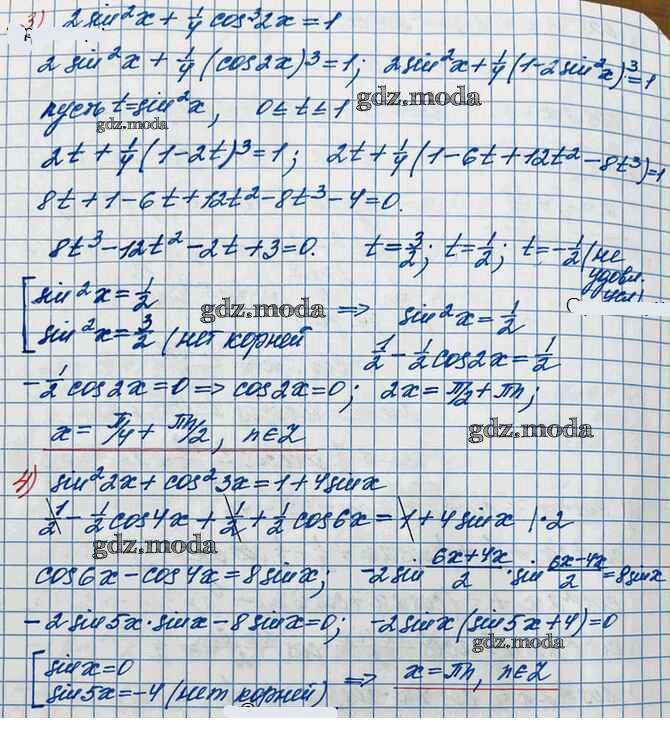 3) 2sin²x + 1/4 cos³2x = 1
2sin²x + 1/4 (cos2x)³ = 1; 2sin²x + 1/4 (1-2sin²x)³ = 1
пусть t = sin²x, 0 ≤ t ≤ 1 gdz.moda
gdz.moda
2t + 1/4 (1-2t)³ = 1; 2t + 1/4 (1-6t+12t²-8t³) = 1
8t + 1 - 6t + 12t² - 8t³ - 4 = 0.
8t³ - 12t² - 2t + 3 = 0. t = 3/2; t = 1/2; t = -1/2 (не
удовл.
усл)
[ sin²x = 1/2
sin²x = 3/2 (нет корней gdz.moda => sin²x = 1/2
1/2 - 1/2 cos2x = 1/2
-1/2 cos2x = 0 => cos2x = 0; 2x = π/2 + πn;
x = π/4 + πn/2, n∈Z gdz.moda
4) sin²2x + cos²3x = 1 + 4sinx
1/2 - 1/2 cos4x + 1/2 + 1/2 cos6x = 1 + 4sinx | ·2
gdz.moda
cos6x - cos4x = 8sinx; -2sin (6x+4x)/2 · sin (6x-4x)/2 = 8sinx
-2sin5x·sinx - 8sinx = 0; -2sinx(sin5x+4) = 0
gdz.moda
[ sinx = 0
sin5x = -4 (нет корней) => x = πn, n∈Z